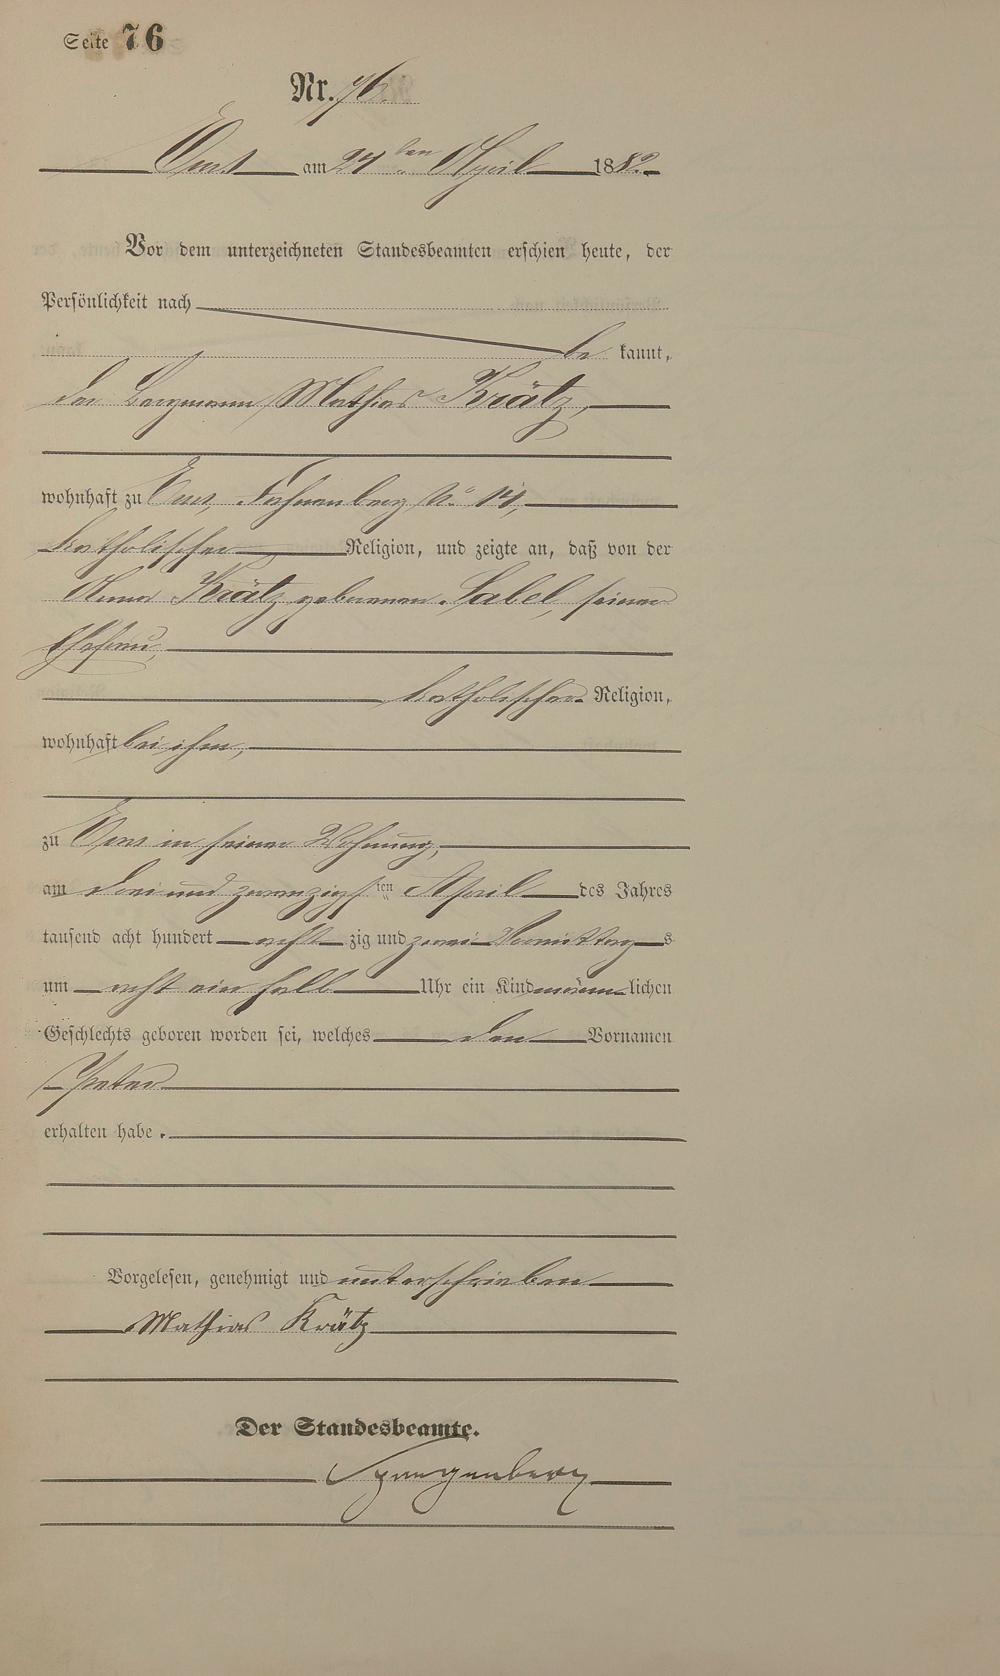 Seite 76
Nr. 76.
Ems am 24ten April 1882.
Vor dem unterzeichneten Standesbeamten erschien heute, der
Persönlichkeit nach
be kannt,
der Bergmann Mathias Krätz,
wohnhaft zu Ems, No 14,
katholischer Religion, und zeigte an, daß von der
Anna Krätz geborenen Sabel, seiner
Ehefrau,
katholischer Religion,
wohnhaft bei ihm,
zu Ems in seiner Wohnung,
am drei und zwanzigsten April des Jahres
tausend acht hundert acht zig und zwei Vormittags
um acht ein halb Uhr ein Kind männ lichen
Geschlechts geboren worden sei, welches den Vornamen
Peter
erhalten habe.
Vorgelesen, genehmigt und unterschrieben
Mathias Krätz
Der Standesbeamte.
Spangenberg